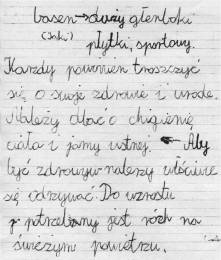 basen → duży głenboki
(Jaki) płytki, sportowy.
Karzdy powinien troszczyć
się o swoje zdrowie i urode.
Należy dbac o chigienię
ciała i jamy ustnej. Aby
być zdrowym należy właściwe
się odrzywać. Do wzrostu
potrzebny jest róch na
świerzym powietrzu.